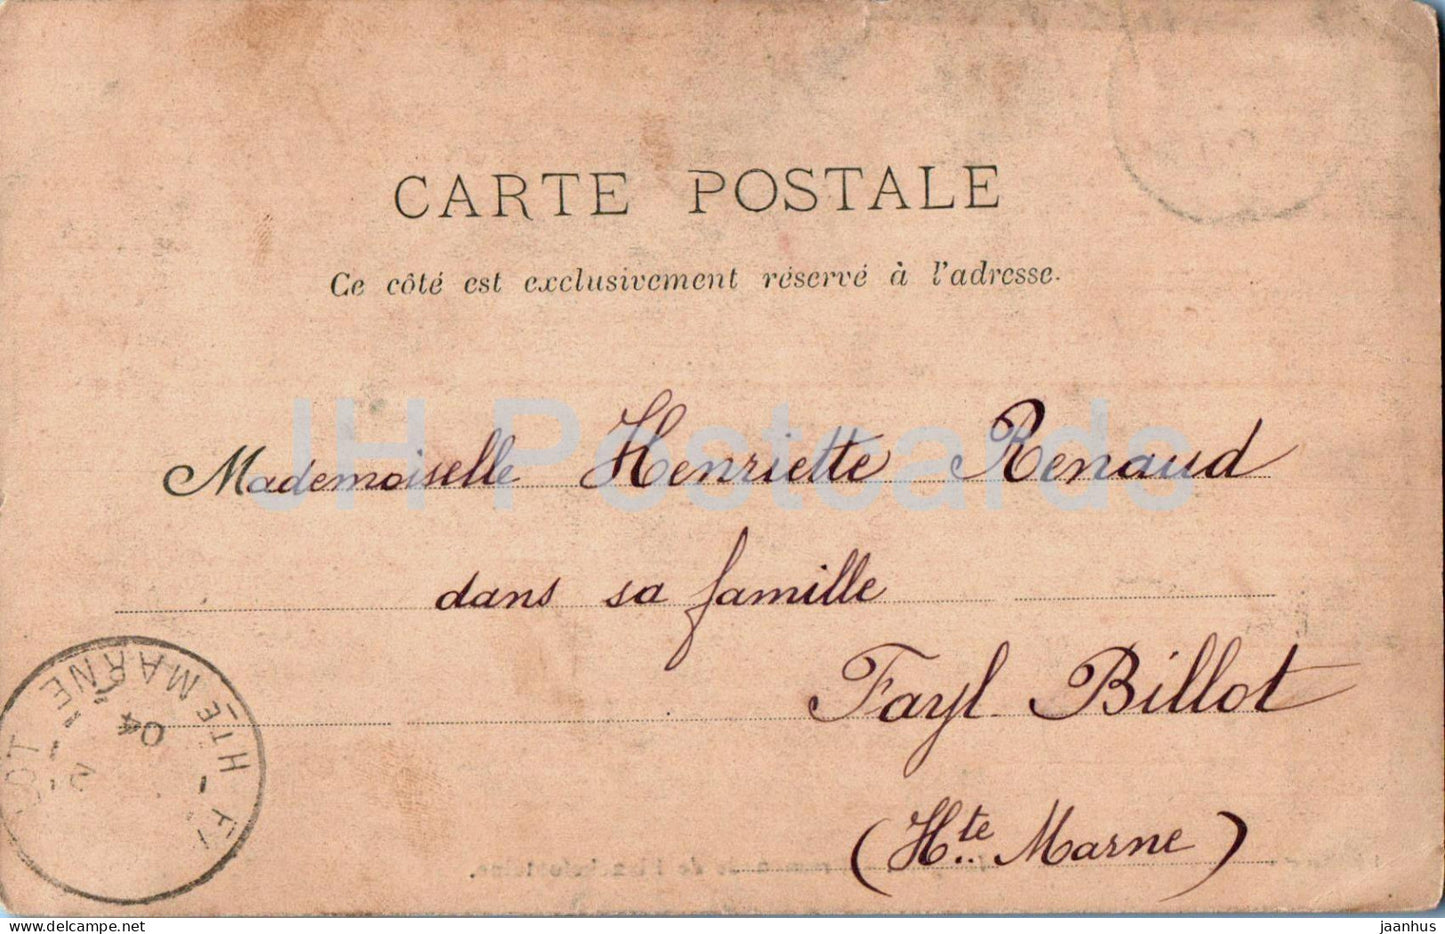 CARTE POSTALE
Ce côté est exclusivement réservé à l'adresse.
JH Postcards
Mademoiselle Henriette Renaud
dans sa famille
Fayl Billot
(Hte Marne)
HTE MARNE
04
jaanhus